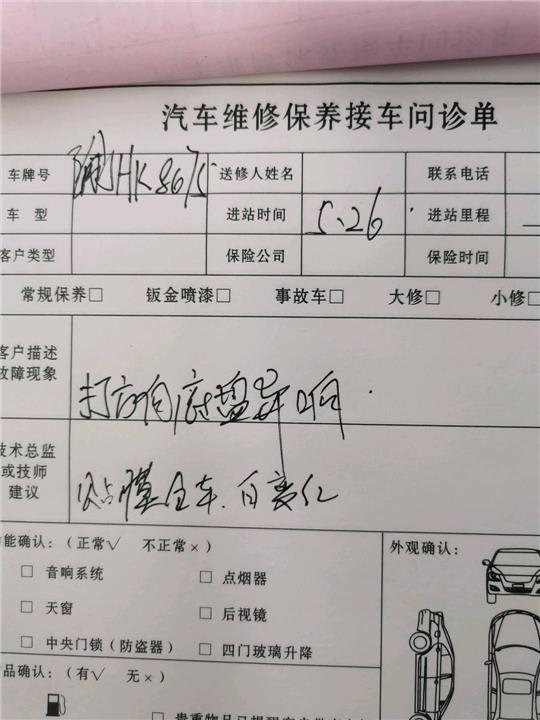 汽车维修保养接车问诊单
车牌号 HK867 送修人姓名 联系电话
车 型 进站时间 5.26 进站里程
客户类型 保险公司 保险时间
常规保养□ 钣金喷漆□ 事故车□ 大修□ 小修□
客户描述
故障现象
打方向底盘异响
技术总监
或技师
建议
贴膜全车.白变红
功能确认：（正常√ 不正常×） 外观确认：
□ 音响系统 □ 点烟器
□ 天窗 □ 后视镜
□ 中央门锁（防盗器） □ 四门玻璃升降
物品确认：（有√ 无×）